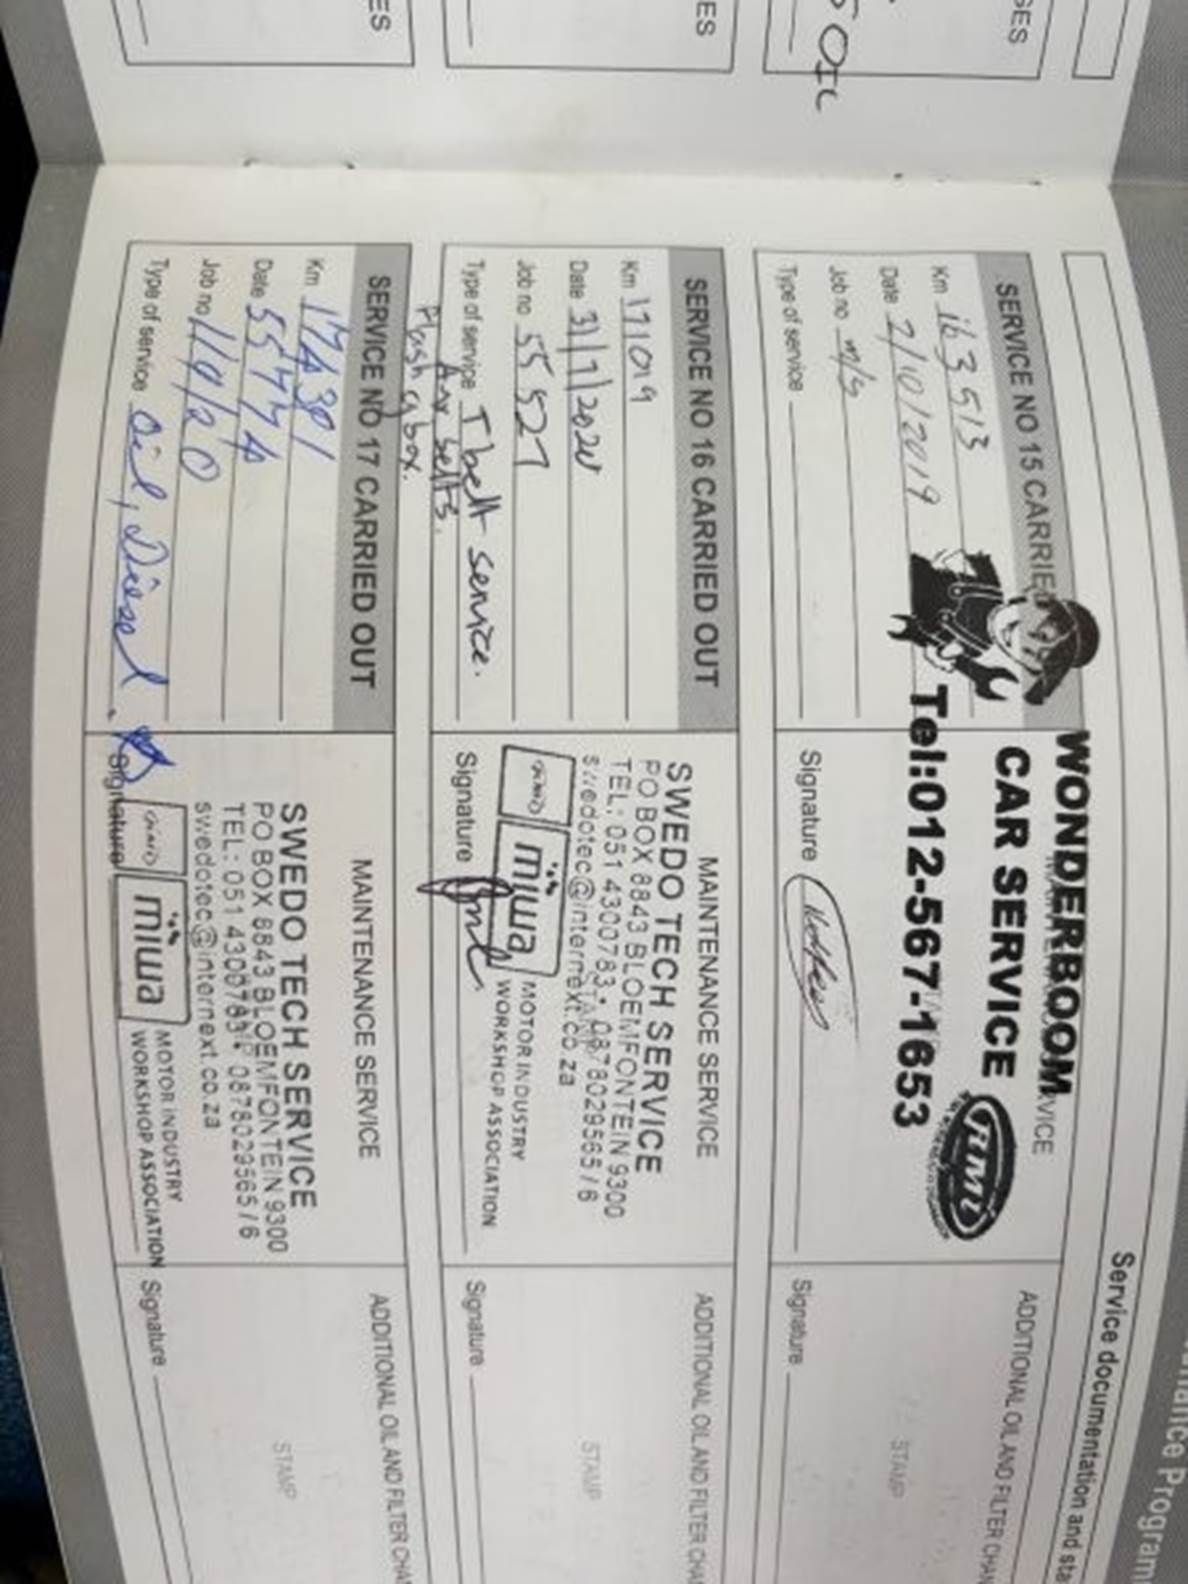 nance Program
Service documentation and sta
GES
OIL
SERVICE NO 15 CARRIED
Km 163513
Date 2/10/2019
Job no m/s
Type of service
WONDERBOOM
CAR SERVICE
Tel:012-567-1653
Signature
ADDITIONAL OIL AND FILTER CHAN
STAMP
Signature
ES
SERVICE NO 16 CARRIED OUT
Km 171019
Date 31/7/2020
Job no 55527
Type of service T belt service.
Aux belts.
Flash gbox.
MAINTENANCE SERVICE
SWEDO TECH SERVICE
PO BOX 8843 BLOEMFONTEIN 9300
TEL: 051 4300783 • 0878029565 / 6
swedotec@internext.co.za
miwa
MOTOR INDUSTRY
WORKSHOP ASSOCIATION
Signature
ADDITIONAL OIL AND FILTER CHA
STAMP
Signature
ES
SERVICE NO 17 CARRIED OUT
Km 174301
Date 55774
Job no 11/9/20
Type of service Oil, Diesel.
MAINTENANCE SERVICE
SWEDO TECH SERVICE
PO BOX 8843 BLOEMFONTEIN 9300
TEL: 051 4300783 • 0878029565 / 6
swedotec@internext.co.za
miwa
MOTOR INDUSTRY
WORKSHOP ASSOCIATION
Signature
ADDITIONAL OIL AND FILTER CHA
STAMP
Signature